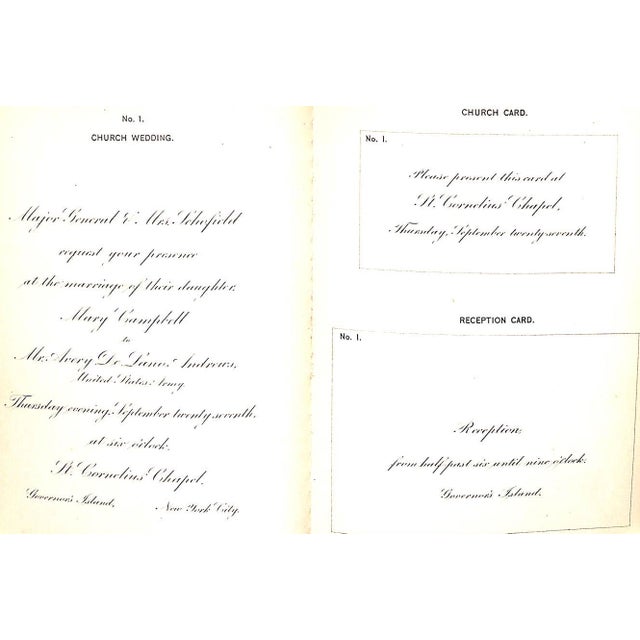 No. 1.
CHURCH WEDDING.
Major General & Mrs. Schofield
request your presence
at the marriage of their daughter,
Mary Campbell
to
Mr. Avery De Lano Andrews,
United States Army,
Thursday evening, September twenty-seventh,
at six o'clock,
St. Cornelius' Chapel,
Governor's Island, New York City.
CHURCH CARD.
No. 1.
Please present this card at
St. Cornelius' Chapel,
Thursday, September twenty-seventh.
RECEPTION CARD.
No. 1.
Reception,
from half past six until nine o'clock.
Governor's Island.